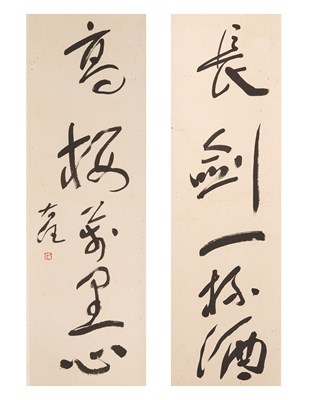 長劍一杯酒
高樓萬里心
右任